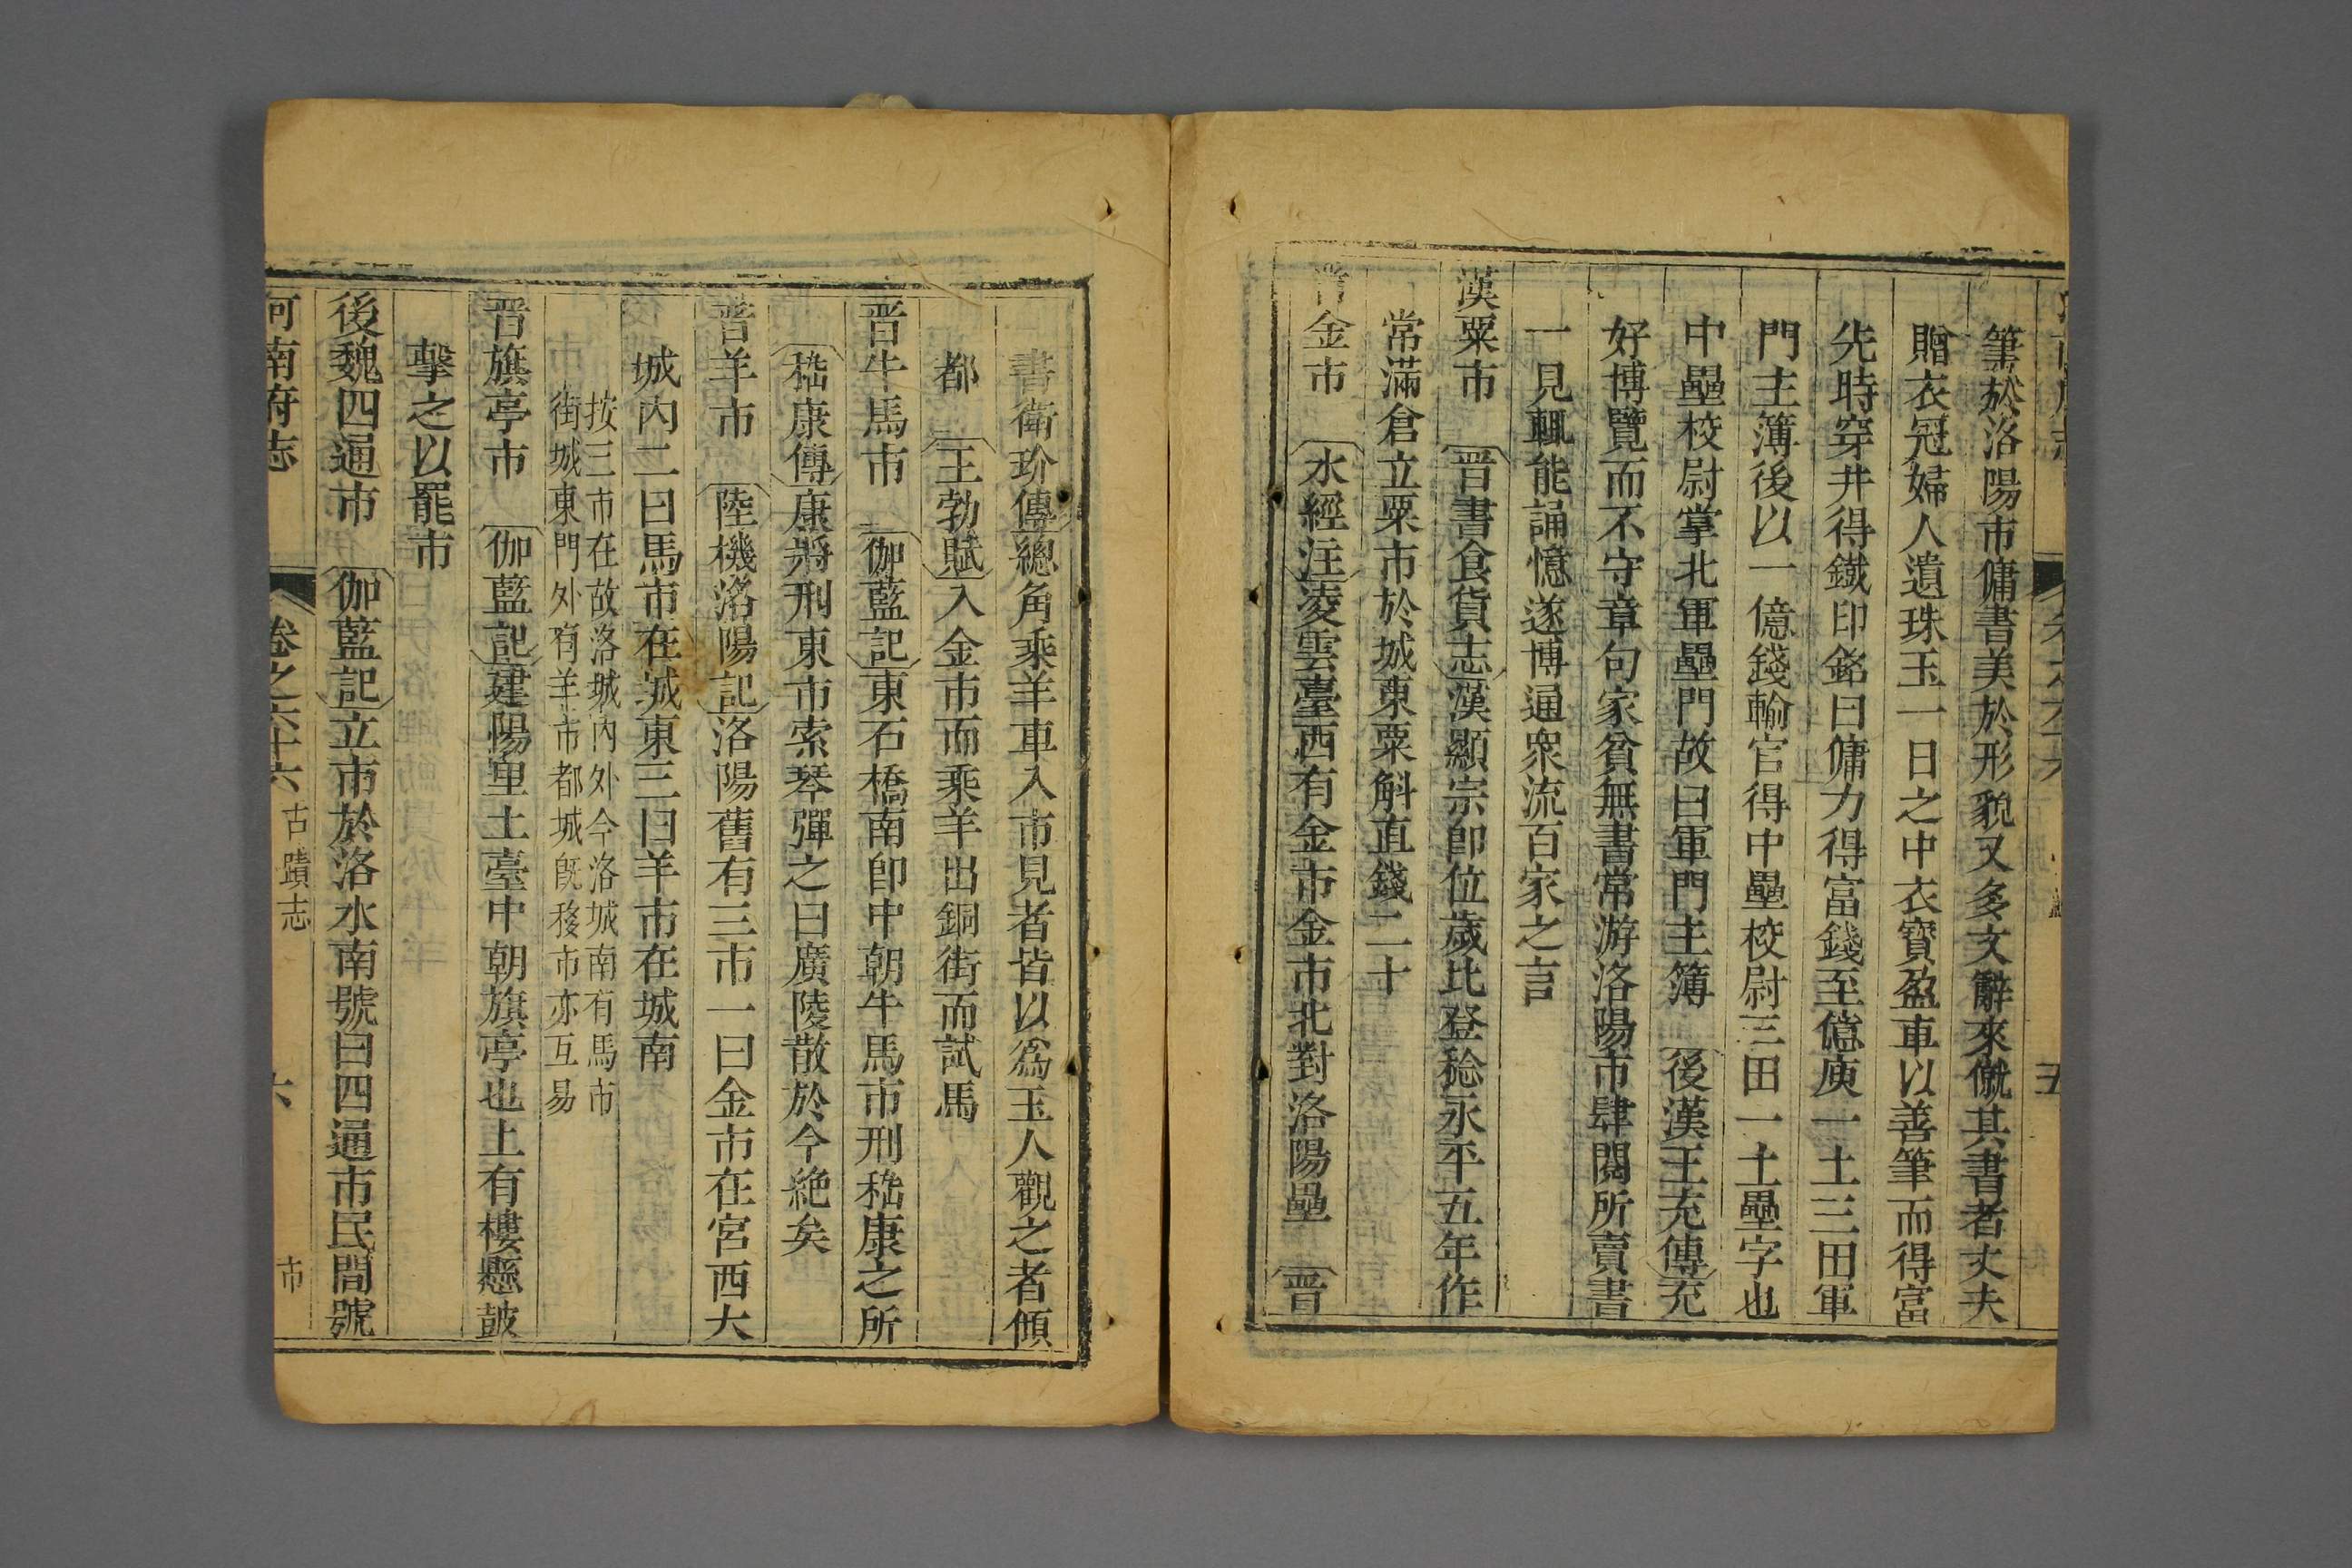 筆於洛陽市傭書美於形貌又多文辭來僦其書者丈夫
贈衣冠婦人遺珠玉一日之中衣寶盈車以善筆而得富
先時穿井得鐵印銘曰傭力得富錢至億庾一土三田軍
門主簿後以一億錢輸官得中壘校尉三田一土壘字也
中壘校尉掌北軍壘門故曰軍門主簿 後漢王充傳充
好博覽而不守章句家貧無書常游洛陽市肆閱所賣書
一見輒能誦憶遂博通衆流百家之言
漢粟市 晉書食貨志漢顯宗卽位歲比登稔永平五年作
常滿倉立粟市於城東粟斛直錢二十
晉金市 水經注凌雲臺西有金市金市北對洛陽壘 晉
書衛玠傳總角乘羊車入市見者皆以爲玉人觀之者傾
都 王勃賦入金市而乘羊出銅街而試馬
晋牛馬市 伽藍記東石橋南卽中朝牛馬市刑嵇康之所
嵇康傳康將刑東市索琴彈之曰廣陵散於今絕矣
晋羊市 陸機洛陽記洛陽舊有三市一曰金市在宮西大
城內二曰馬市在城東三曰羊市在城南
按三市在故洛城內外今洛城南有馬市
街城東門外有羊市都城旣移市亦互易
晋旗亭市 伽藍記建陽里土臺中朝旗亭也上有樓懸鼓
擊之以罷市
後魏四通市 伽藍記立市於洛水南號曰四通市民間號
河南府志 卷之六十六 古蹟志 六 市